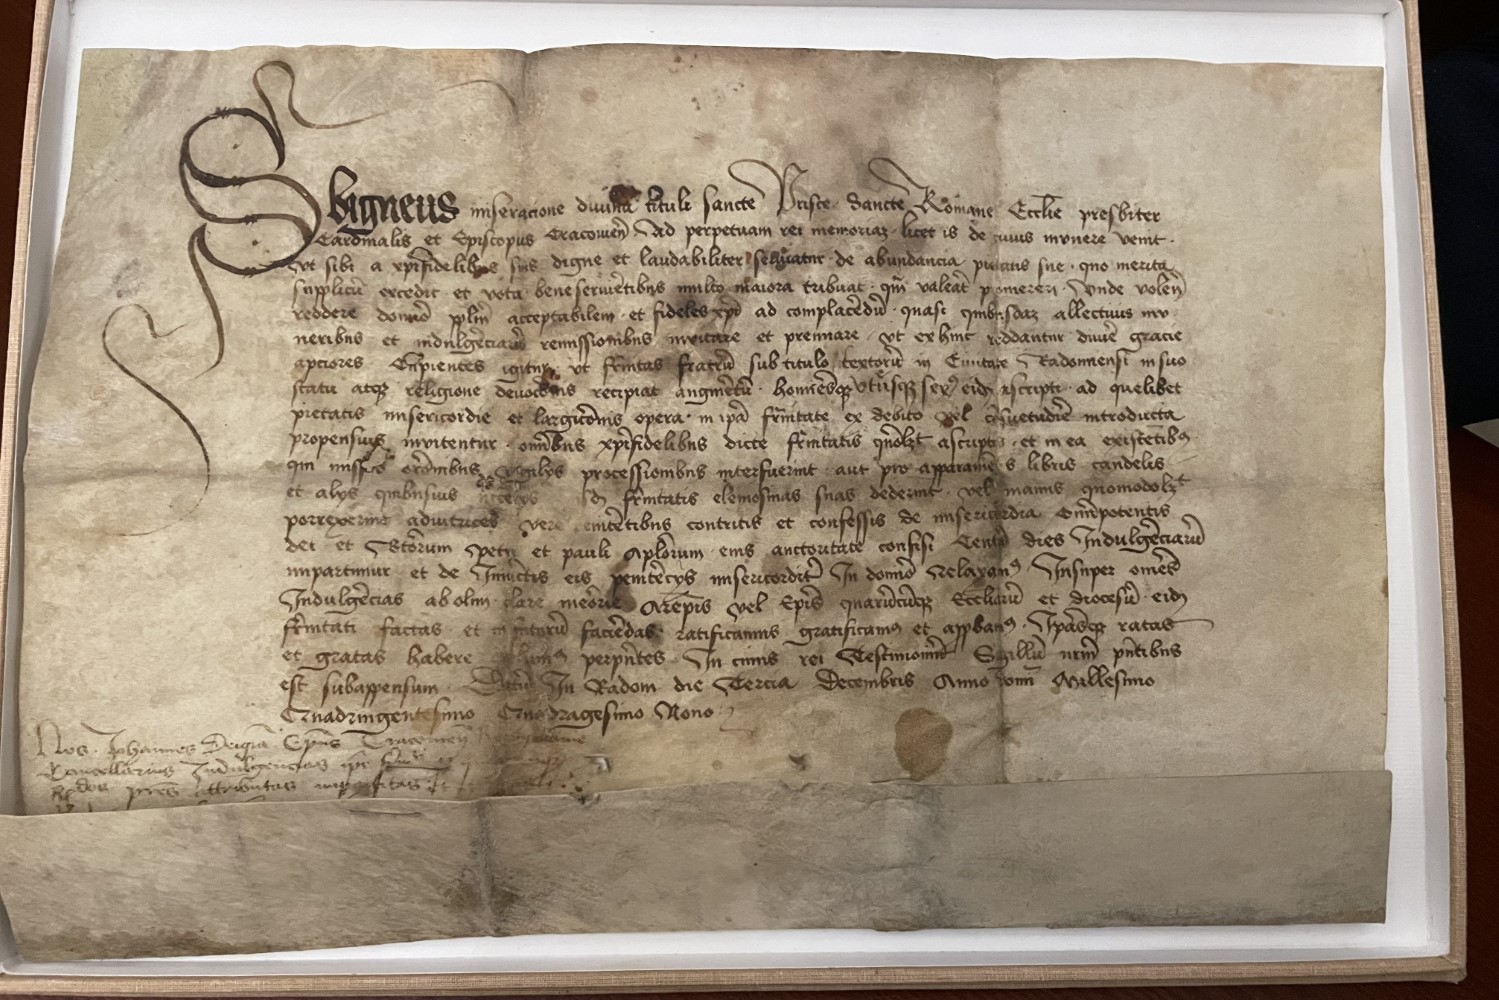 Sbigneus miseracione divina tituli sancte Prisce Sancte Romane Ecclie presbiter
Cardinalis et Episcopus Cracovien Ad perpetuam rei memoriam licet is de cuius munere venit
ut sibi a xpifidelibus suis digne et laudabiliter serviatur de abundancia pietatis sue que merita
supplicu excedit et vota bene servietibus multo maiora tribuat qm valeat pmereri Unde volen
reddere domio pplm acceptabilem et fideles xpi ad complacedu quasi quibusdaz allectivis mu
neribus et indulgeciaru remissionibus invitare et premiare ut exhinc reddantur divie gracie
apciores Cupientes igitur ut frnitas fratru sub titulo textoru in Civitate Radomiensi in suo
statu atq religione devocionis recipiat augmetu hominesqz utriusqz sex eidz ascripti ad quelibet
pietatis misericordie et largicionis opera in ipa frnitate ex debito vel cosuetudie introducta
propensius invitentur omibus xpifidelibus dicte frnitatis ascriptis et in ea existetibus
qui missis oroibus vigilys processionibus interfuerint aut pro apparametis libris candelis
et alys quibusvis frnitatis elemosinas suas dederint vel manus quomodolzt
porrexerint adiutrices vere penitetibus contritis et confessis de misericordia Omipotentis
dei et Btorum Petri et pauli Aplorum eius auctoritate confisi Centu dies Indulgeciaru
impartimur et de Iniuctis eis penitecys misericordit In domio relaxam Insuper omes
Indulgecias ab olim clare meorie Arepis vel Epis quarucuqz Eccliaru et diocesu eidz
frnitati factas et in futuru faciedas ratificamus gratificam et appbam Ipasqz ratas
et gratas habere volum perpntes In cuius rei Testimoium Sigillu nrm pntibus
est subappensum Datum In Radom die Tercia Decembris Anno domi Millesimo
Quadringentesimo Quadragesimo Nono
Nos Johannes Dei gra Epus Cracovien
Cancellarius Indulgencias
pres attributas